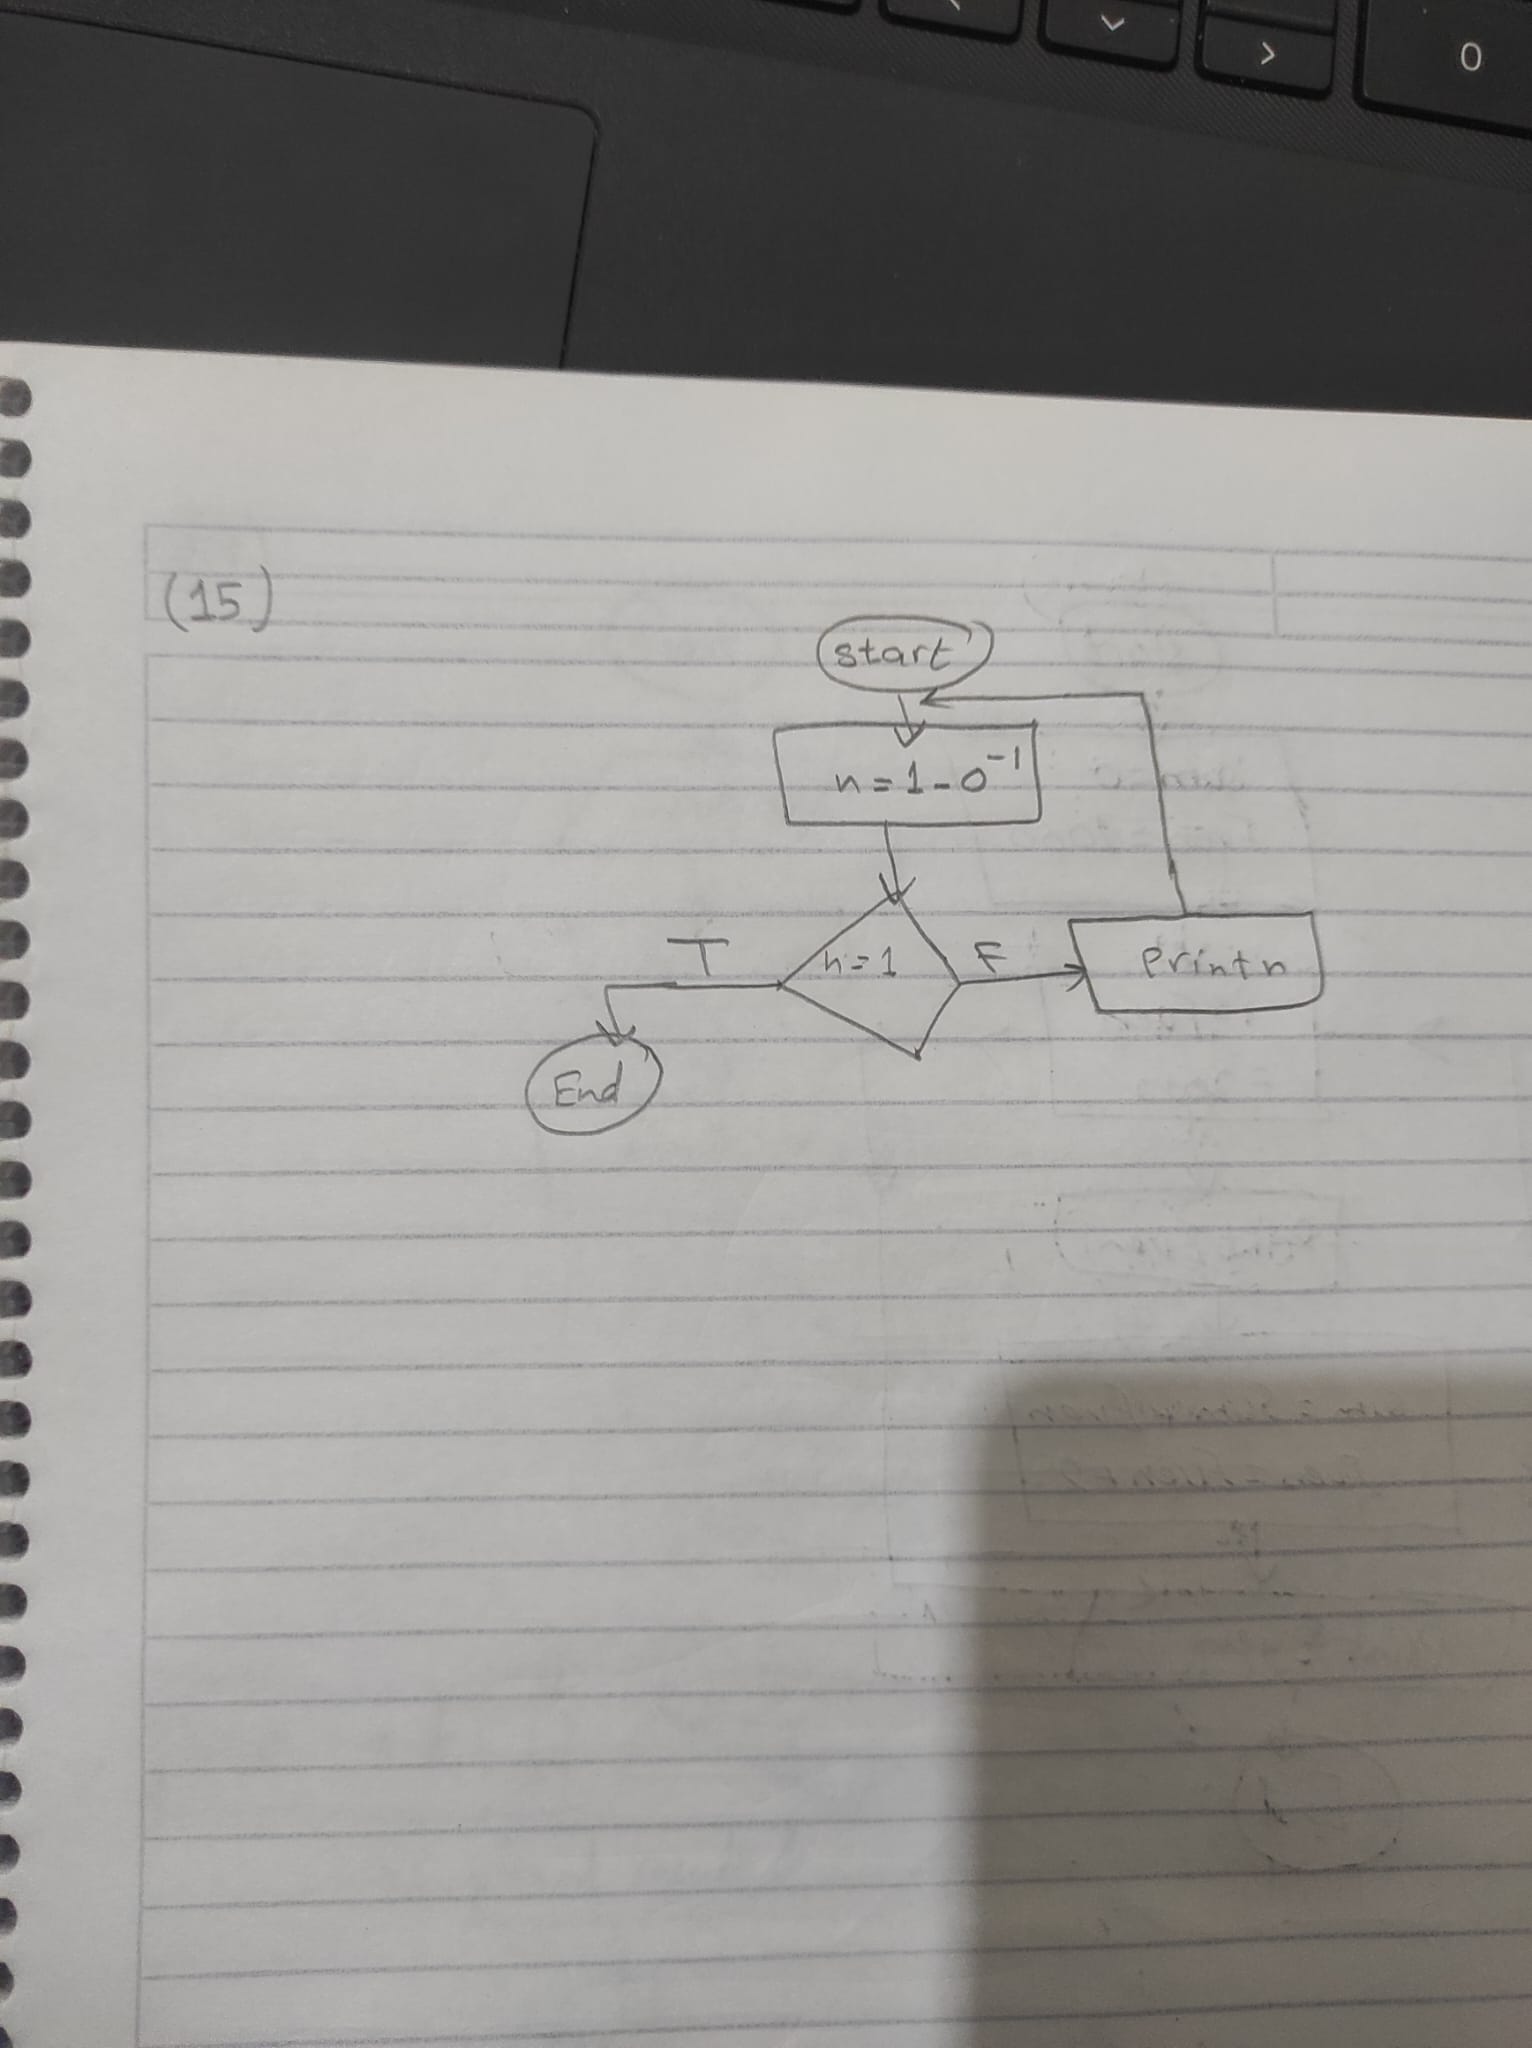 0
(15)
start
n = 1 - 0⁻¹
n = 1
T
F
Print n
End